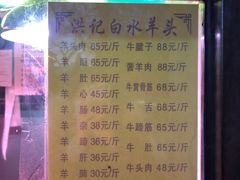 洪记白水羊头
羊头肉 65元/斤 牛腱子 88元/斤
羊 65元/斤 酱羊肉 88元/斤
羊肚 65元/斤 牛背骨筋 68元/斤
羊心 45元/斤 牛舌 68元/斤
羊肠 48元/斤 牛蹄筋 65元/斤
羊杂 38元/斤
羊蹄 36元/斤 牛肚 65元/斤
羊肝 36元/斤 牛头肉 48元/斤
羊肺 30元/斤